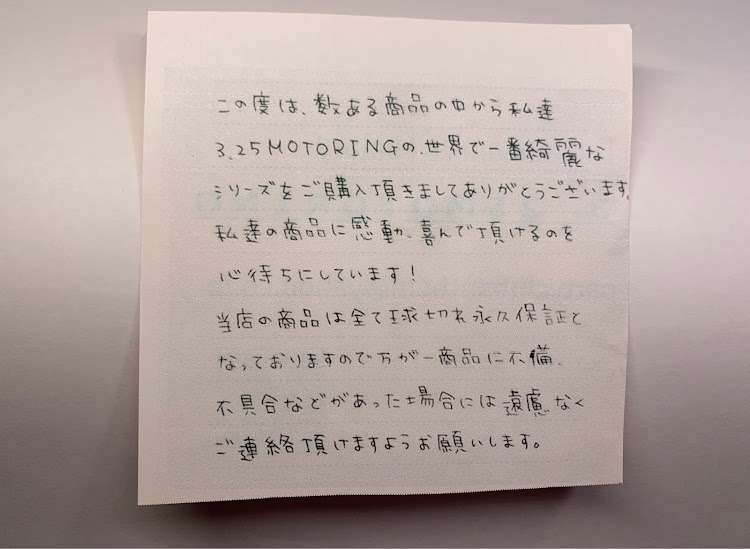 この度は、数ある商品の中から私達
3.25MOTORINGの、世界で一番綺麗な
シリーズをご購入頂きましてありがとうございます。
私達の商品に感動、喜んで頂けるのを
心待ちにしています!
当店の商品は全て球切れ永久保証と
なっておりますので万が一商品に不備、
不具合などがあった場合には遠慮なく
ご連絡頂けますようお願いします。